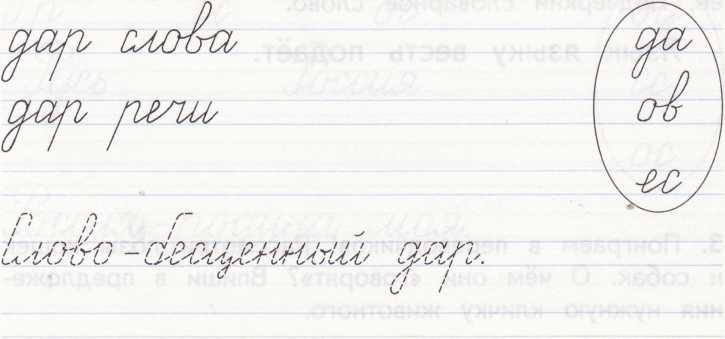 дар слова
дар речи
да
ов
ес
Слово - бесценный дар.